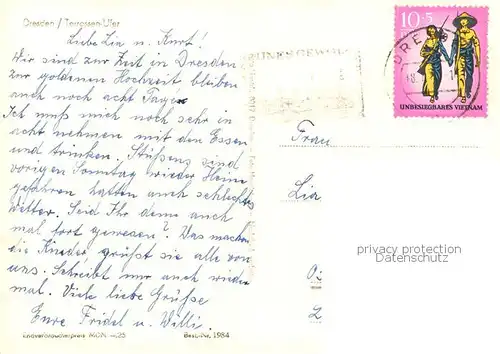 Dresden / Terrassen-Ufer
Liebe Lia u. Kurt!
Wir sind zur Zeit in Dresden
zur goldenen Hochzeit bleiben
auch noch acht Tage.
Ich muß mich noch sehr in
acht nehmen mit den Essen
und trinken. Stüßens sind
vorigen Sonntag wieder Heim
gefahren hatten auch schlechtes
Wetter. Seid Ihr denn auch
mal fort gewesen? Was machen
die Kinder, grüßt sie alle von
uns. Schreibt nur auch wieder
mal. Viele liebe Grüße
Eure Fridel u. Willi.
Endverbraucherpreis MDN -,25
Best.-Nr. 1984
10+5
UNBESIEGBARES VIETNAM
DRES
Frau
Lia
privacy protection
Datenschutz